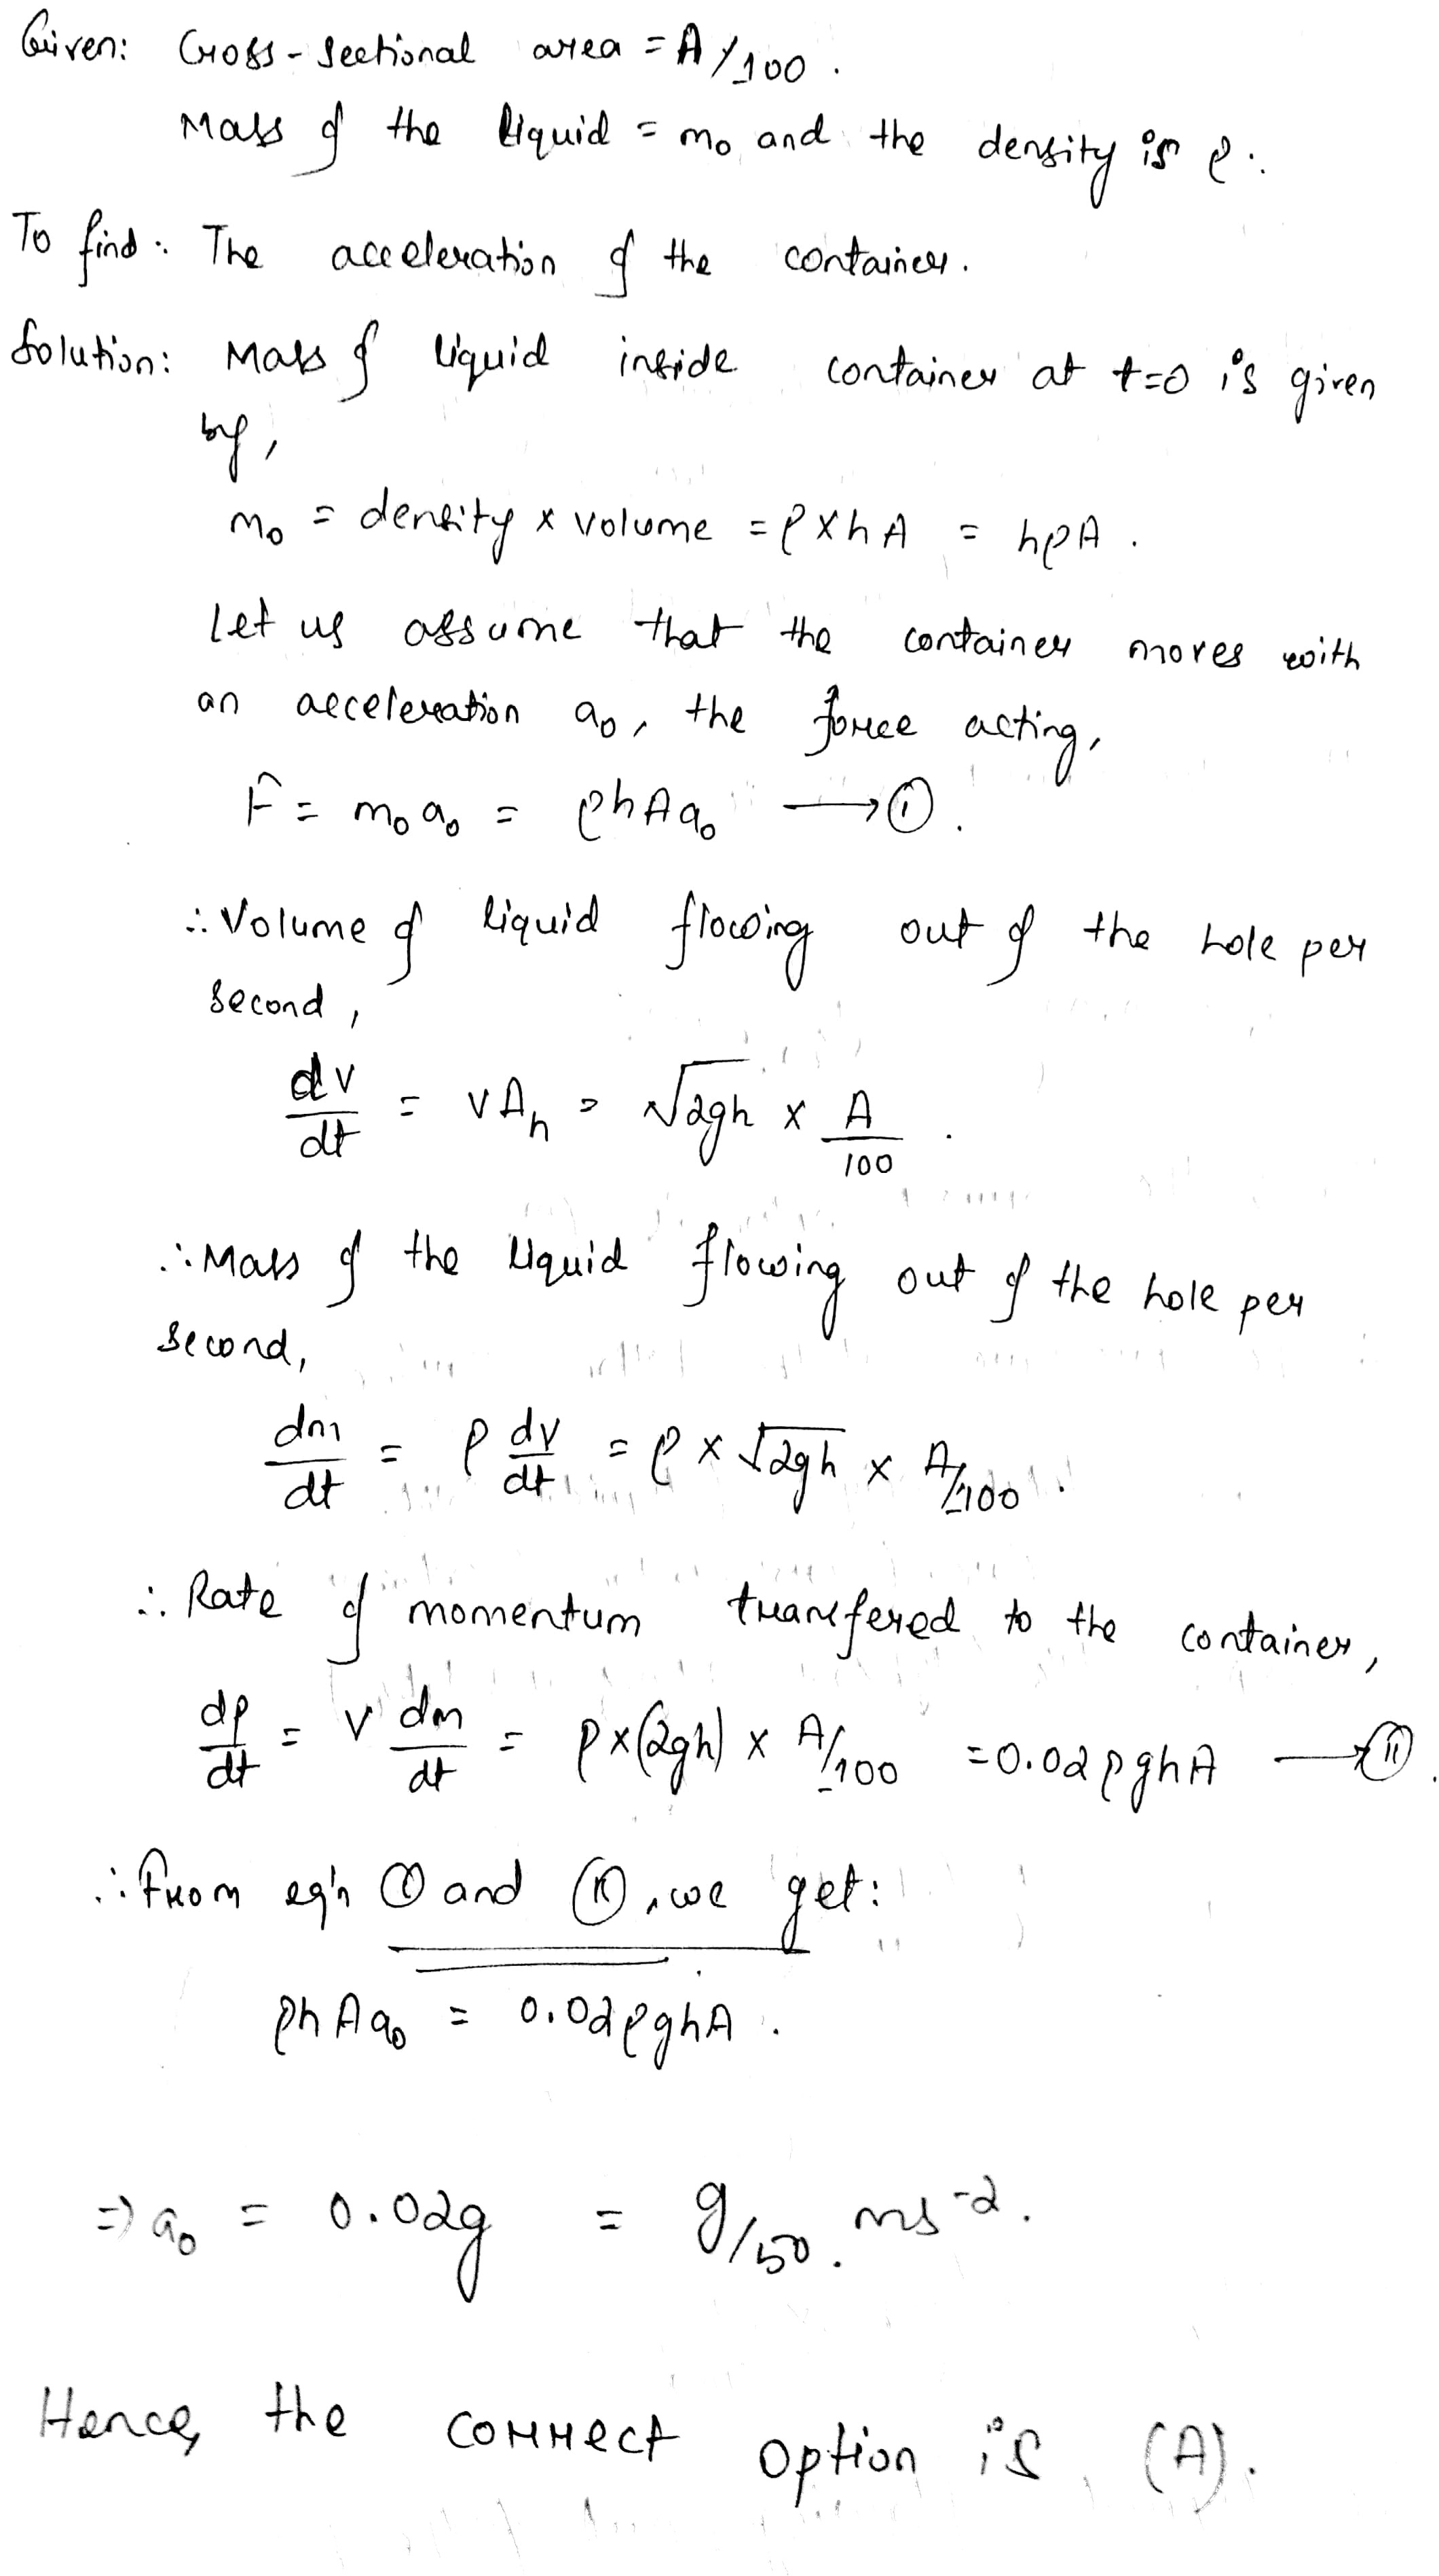 Given: Cross-sectional area = A/100.
Mass of the liquid = m₀ and the density is ρ.
To find: The acceleration of the container.
Solution: Mass of liquid inside container at t=0 is given
by,
m₀ = density x volume = ρ x h A = hρA.
Let us assume that the container moves with
an acceleration a₀, the force acting,
F = m₀ a₀ = ρhAa₀ → (I).
∴ Volume of liquid flowing out of the hole per
second,
dv/dt = vAₕ = √2gh x A/100.
∴ Mass of the liquid flowing out of the hole per
second,
dm/dt = ρ dv/dt = ρ x √2gh x A/100.
∴ Rate of momentum transfered to the container,
dp/dt = v dm/dt = ρx(2gh) x A/100 = 0.02ρghA → (II).
∴ From eq'n (I) and (II), we get:
ρhAa₀ = 0.02ρghA.
⇒ a₀ = 0.02g = g/50. ms⁻².
Hence, the correct option is (A).